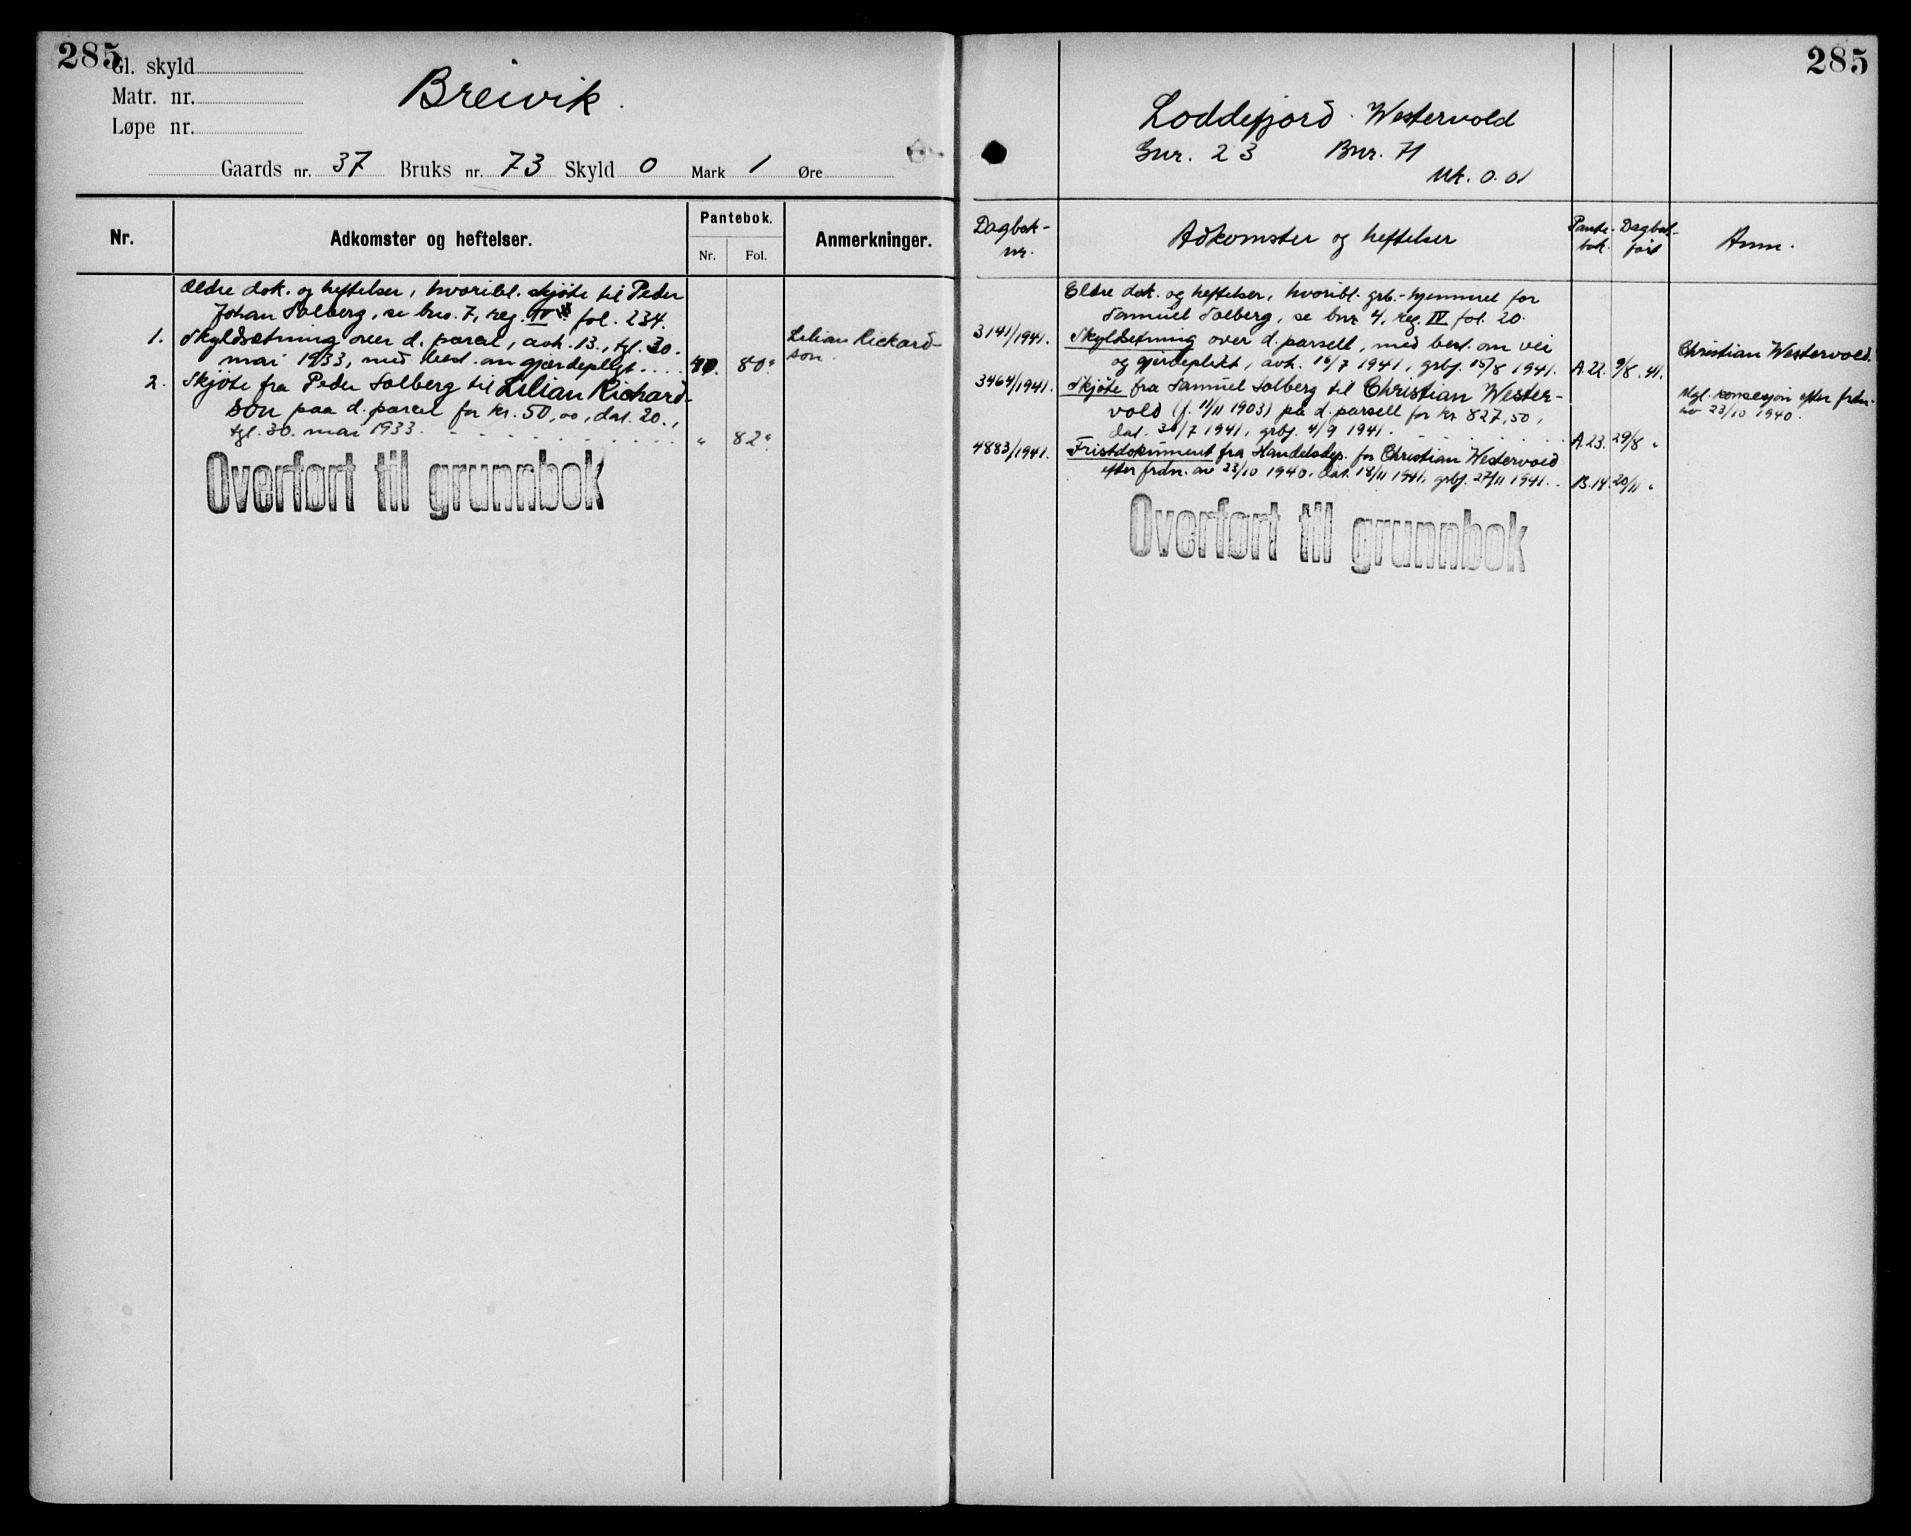 285
Gl. skyld
Matr. nr.
Løpe nr.
Breivik.
Gaards nr. 37 Bruks nr. 73 Skyld 0 Mark 1 Øre
Nr.
Adkomster og heftelser.
Pantebok.
Nr. Fol.
Anmerkninger.
Ældre dok. og heftelser, hvoribl. skjøte til Peder
Johan Solberg, se bno. 7, reg. IV fol. 234.
1. Skyldsætning over d. parcel, avh. 13., tgl. 30.
mai 1933, med best. om gjærdepligt . . . . 80
Lilian Rickard-
son.
2. Skjøte fra Peder Solberg til Lilian Richard-
son paa d. parcel for kr. 50,00, dat. 20.,
tgl. 30. mai 1933. . . . . . . . . . . . " 82
Overført til grunnbok
285
Loddefjord Westervold
Gnr. 23 Bnr. 71
Mk. 0.01
Dagbok-
nr.
Adkomster og heftelser
Pante-
bok.
Dagbok-
ført
Anm.
Eldre dok. og heftelser, hvoribl. grb.-hjemmel for
Samuel Solberg, se bnr 4, reg. IV fol. 20.
3141/1941. Skyldsetning over d. parsell, med best. om vei
og gjerdeplikt, avh. 16/7 1941, grbf. 15/8 1941. A.22. 9/8. 41.
Christian Westervold.
3464/1941. Skjøte fra Samuel Solberg til Christian Wester-
vold (f. 11/11 1903) på d. parsell for kr 827,50,
dat. 31/7 1941, grbf. 4/9 1941. . . . . . . . A.23. 29/8 "
Mgl. konsesjon efter frdn.
av 23/10 1940.
4883/1941. Fristdokument fra Handelsdep. for Christian Westervold
efter frdn. av 23/10 1940, dat. 18/11 1941, grbf. 27/11 1941. . B.14. 20/11 "
Overført til grunnbok